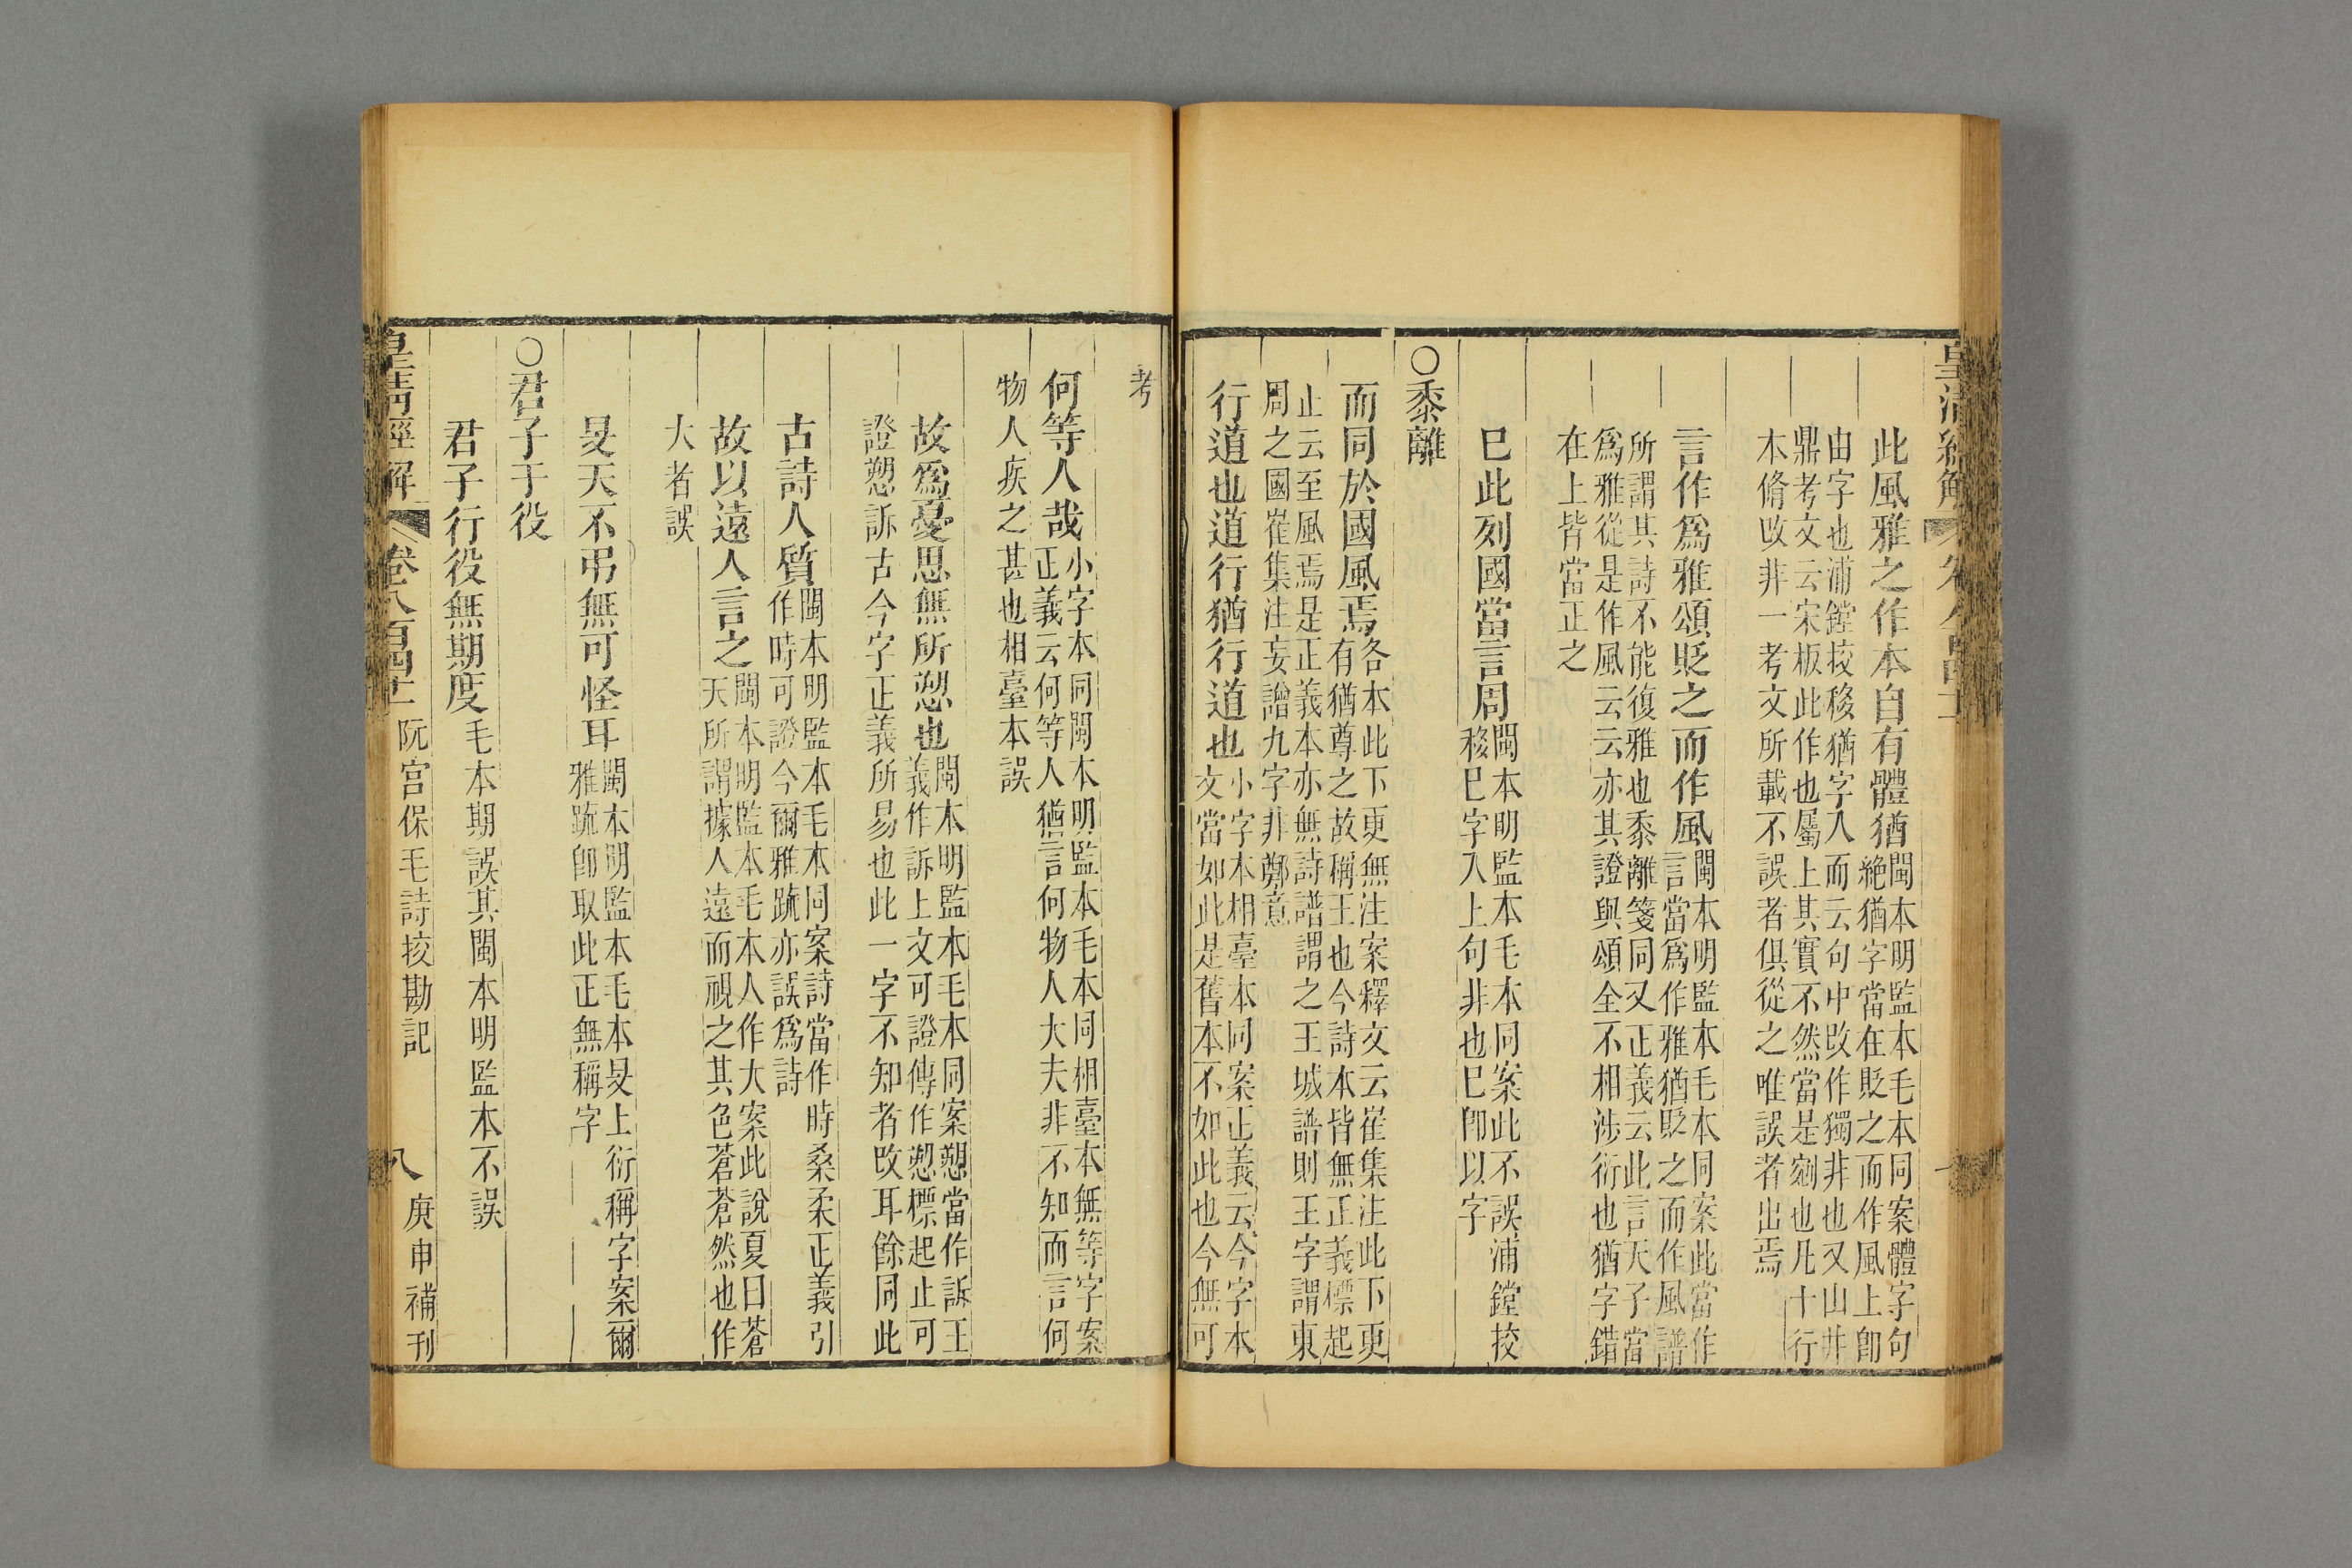 此風雅之作本自有體猶閩本明監本毛本同案體字句
絶猶字當在貶之而作風上卽
由字也浦鏜挍移猶字入而云句中改作獨非也又山井
鼎考文云宋板此作也屬上其實不然當是剜也凡十行
本脩改非一考文所載不誤者俱從之唯誤者出焉
言作爲雅頌貶之而作風閩本明監本毛本同案此當作
言當爲作雅猶貶之而作風譜
所謂其詩不能復雅也黍離箋同又正義云此言天子當
爲雅從是作風云云亦其證與頌全不相涉衍也猶字錯
在上皆當正之
巳此列國當言周閩本明監本毛本同案此不誤浦鏜挍
移巳字入上句非也巳卽以字
○黍離
而同於國風焉各本此下更無注案釋文云崔集注此下更
有猶尊之故稱王也今詩本皆無正義標起
止云至風焉是正義本亦無詩譜謂之王城譜則王字謂東
周之國崔集注妄譄九字非鄭意
行道也道行猶行道也小字本相臺本同案正義云今字本
文當如此是舊本不如此也今無可
考
何等人哉小字本同閩本明監本毛本同相臺本無等字案
正義云何等人猶言何物人大夫非不知而言何
物人疾之甚也相臺本誤
故爲憂思無所愬也閩本明監本毛本同案愬當作訴王
義作訴上文可證傳作愬標起止可
證愬訴古今字正義所易也此一字不知者改耳餘同此
古詩人質閩本明監本毛本同案詩當作時桑柔正義引
作時可證今爾雅䟽亦誤爲詩
故以遠人言之閩本明監本毛本人作大案此說夏曰蒼
天所謂據人遠而視之其色蒼蒼然也作
大者誤
旻天不弔無可怪耳閩本明監本毛本旻上衍稱字案爾
雅䟽卽取此正無稱字
○君子于役
君子行役無期度毛本期誤其閩本明監本不誤
皇淸經解 卷八百四十一 阮宮保毛詩挍勘記 八 庚申補刊